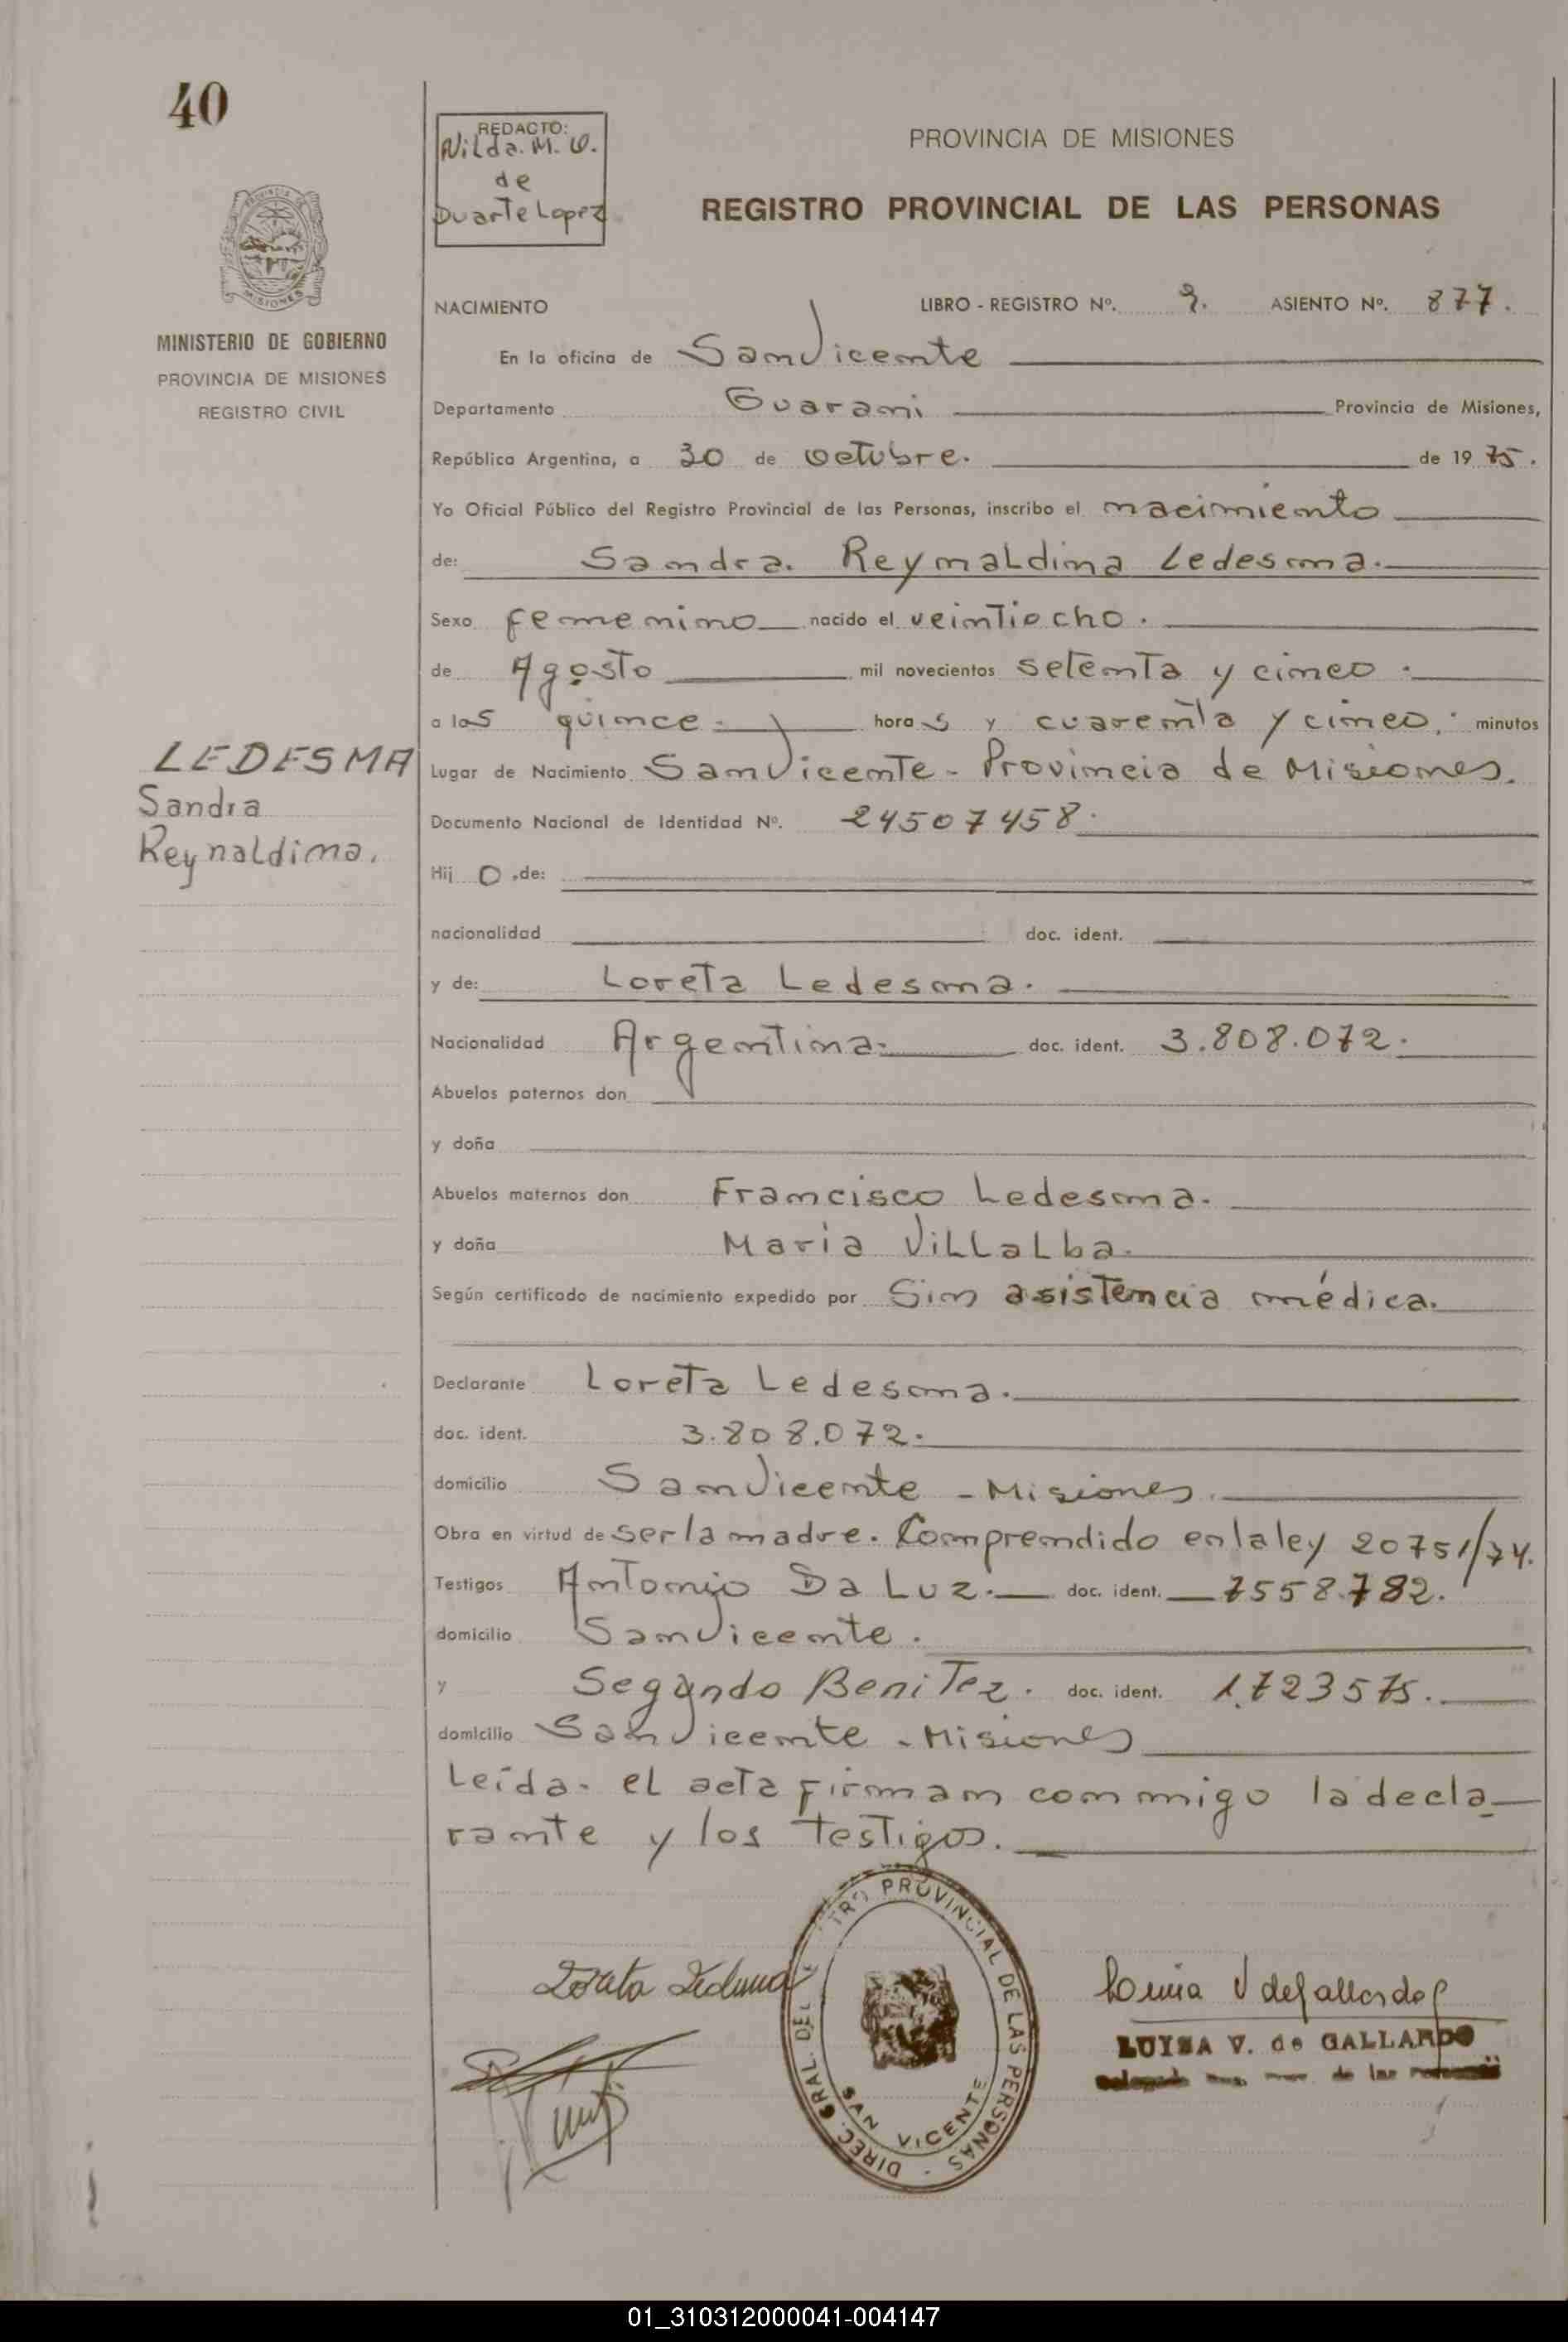 40
REDACTO:
Nilda. M. O.
de
Duarte Lopez
PROVINCIA DE MISIONES
REGISTRO PROVINCIAL DE LAS PERSONAS
MISIONES
MINISTERIO DE GOBIERNO
PROVINCIA DE MISIONES
REGISTRO CIVIL
NACIMIENTO LIBRO - REGISTRO Nº. 9. ASIENTO Nº. 877.
En la oficina de San Vicente
Departamento Guarani Provincia de Misiones,
República Argentina, a 30 de octubre. de 19 75.
Yo Oficial Público del Registro Provincial de las Personas, inscribo el nacimiento
de: Sandra. Reynaldina Ledesma.
Sexo femenino nacido el veintiocho.
de Agosto mil novecientos setenta y cinco.
a las quince. horas y cuarenta y cinco. minutos
LEDESMA
Sandra
Reynaldina.
Lugar de Nacimiento San Vicente - Provincia de Misiones.
Documento Nacional de Identidad Nº. 24507458.
Hij o de:
nacionalidad doc. ident.
y de: Loreta Ledesma.
Nacionalidad Argentina. doc. ident. 3.808.072.
Abuelos paternos don
y doña
Abuelos maternos don Francisco Ledesma.
y doña Maria Villalba.
Según certificado de nacimiento expedido por Sin asistencia médica.
Declarante Loreta Ledesma.
doc. ident. 3.808.072.
domicilio San Vicente - Misiones.
Obra en virtud de ser la madre. Comprendido en la ley 20751/74.
Testigos Antonio Da Luz. doc. ident. 7558.782.
domicilio San Vicente.
y Segundo Benitez. doc. ident. 1.723575.
domicilio San Vicente - Misiones
Leída. el acta firman conmigo la decla-
rante y los testigos.
DIREC. GRAL. DEL TRO PROVINCIAL DE LAS PERSONAS -
SAN VICENTE
Loreta Ledesma
Luisa V de Gallardo
LUISA V. de GALLARDO
de las
01_310312000041-004147